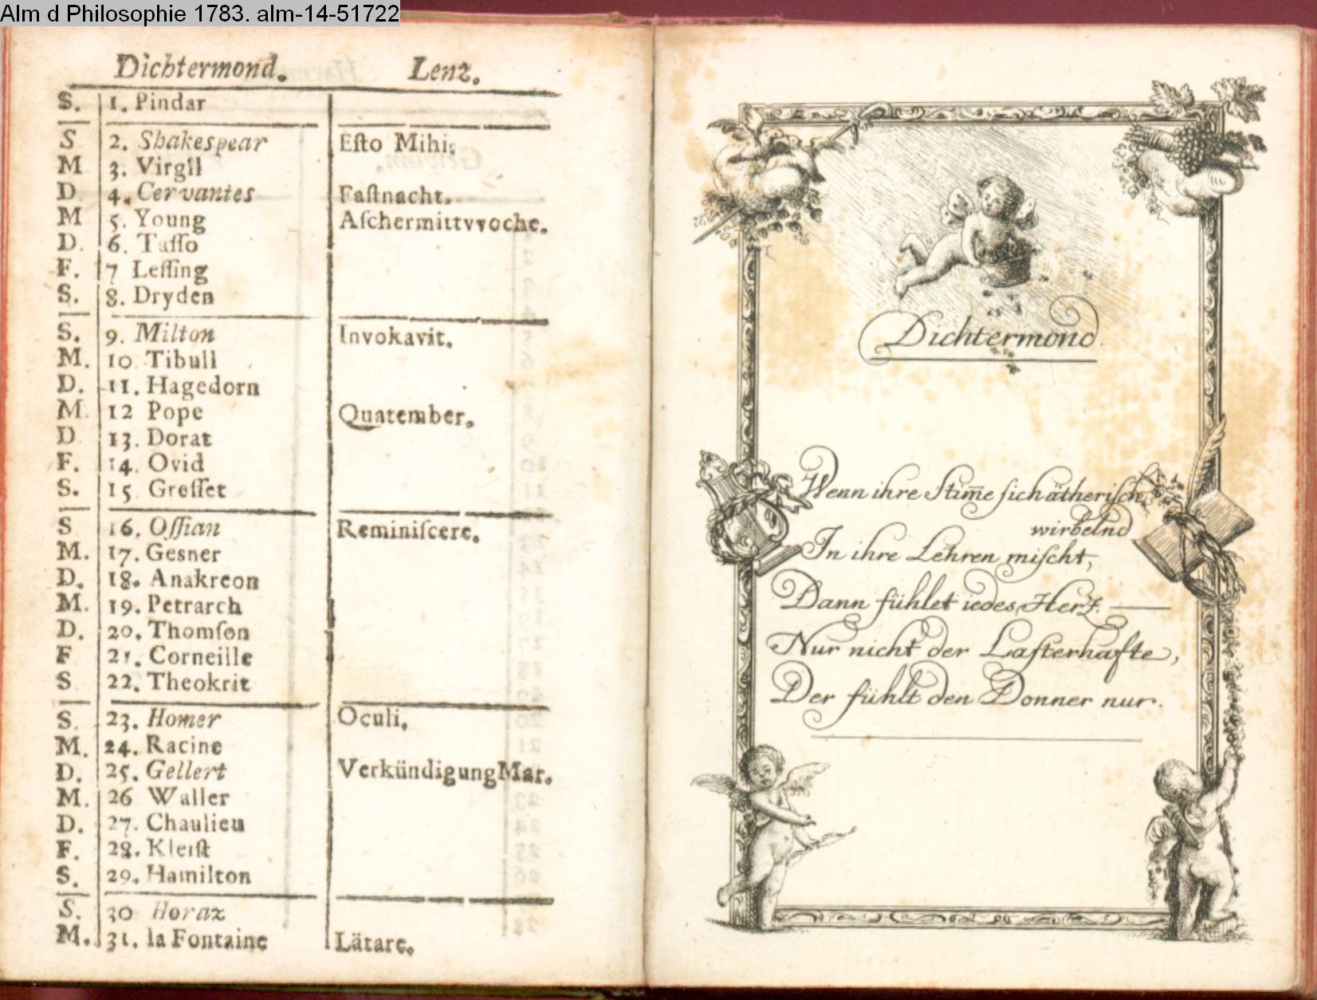 Alm d Philosophie 1783. alm-14-51722
Dichtermond. Lenz.
S. 1. Pindar
S 2. Shakespear Eſto Mihi.
M 3. Virgil
D 4. Cervantes Faſtnacht.
M 5. Young Aſchermittvvoche.
D. 6. Taſſo
F. 7 Leſſing
S. 8. Dryden
S. 9. Milton Invokavit.
M. 10 Tibull
D. 11. Hagedorn
M. 12 Pope Quatember.
D 13. Dorat
F. 14. Ovid
S. 15 Greſſet
S 16. Oſſian Reminiſcere.
M. 17. Gesner
D. 18. Anakreon
M. 19. Petrarch
D. 20. Thomſon
F 21. Corneille
S 22. Theokrit
S. 23. Homer Oculi.
M. 24. Racine
D. 25. Gellert Verkündigung Mar.
M. 26 Waller
D. 27. Chaulieu
F. 28. Kleiſt
S. 29. Hamilton
S. 30 Horaz
M. 31. la Fontaine Lätare.
Dichtermond
Wenn ihre Stim̅e ſich ätheriſch
wirbelnd
In ihre Lehren miſcht,
Dann fühlet iedes Herz. —
Nur nicht der Laſterhafte,
Der fühlt den Donner nur.